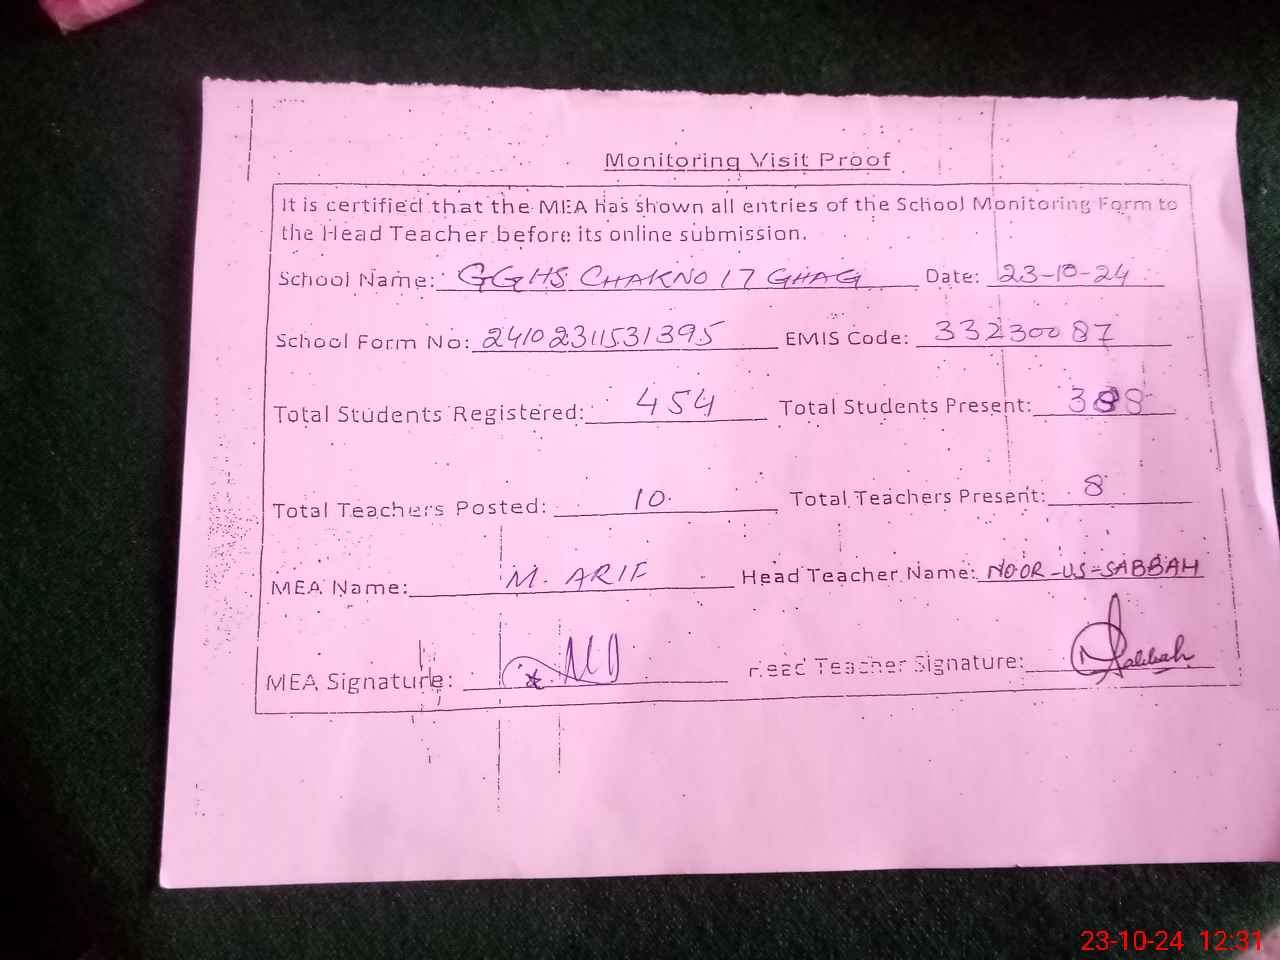 Monitoring Visit Proof
It is certified that the MEA has shown all entries of the School Monitoring Form to
the Head Teacher before its online submission.
School Name: GGHS CHAKNO 17 GHAG Date: 23-10-24
School Form No: 2410231531395 EMIS Code: 33230087
Total Students Registered: 454 Total Students Present:
Total Teachers Posted: 10 Total Teachers Present: 8
MEA Name: M. ARIF Head Teacher Name: NOOR-US-SABBAH
MEA Signature: Head Teacher Signature:
23-10-24 12:31